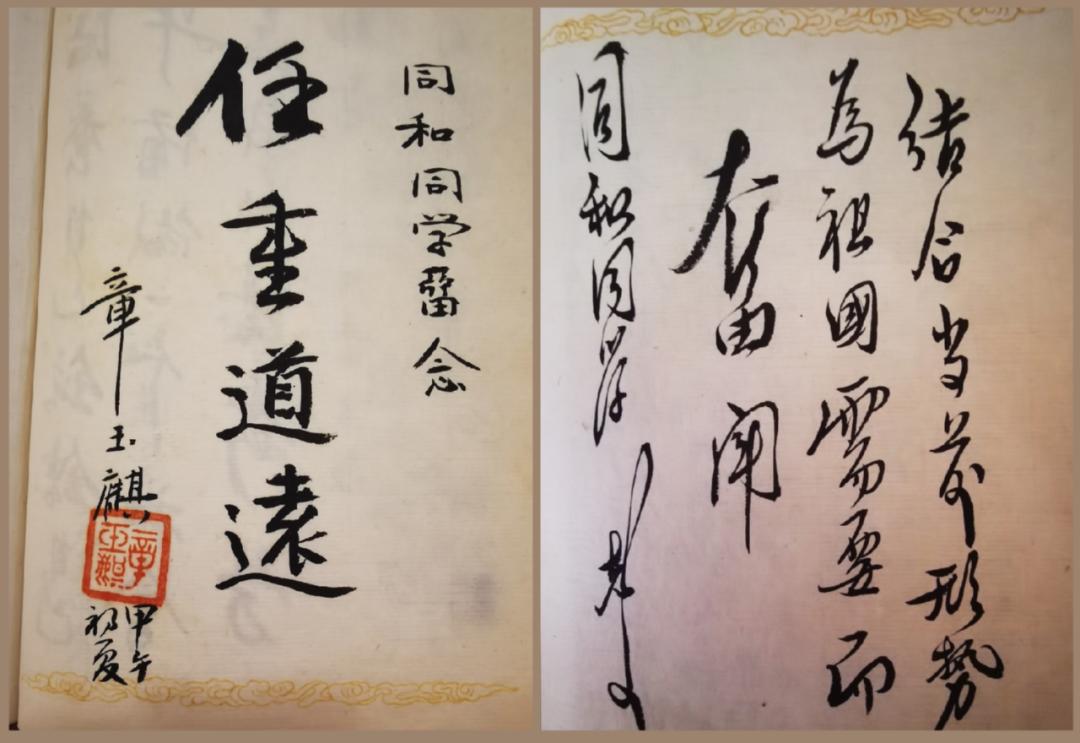 同和同学畱念
任重道遠
章玉麒
章玉麒
甲午
初夏
结合当前形势
為祖國需要而
奋闘
同和同学